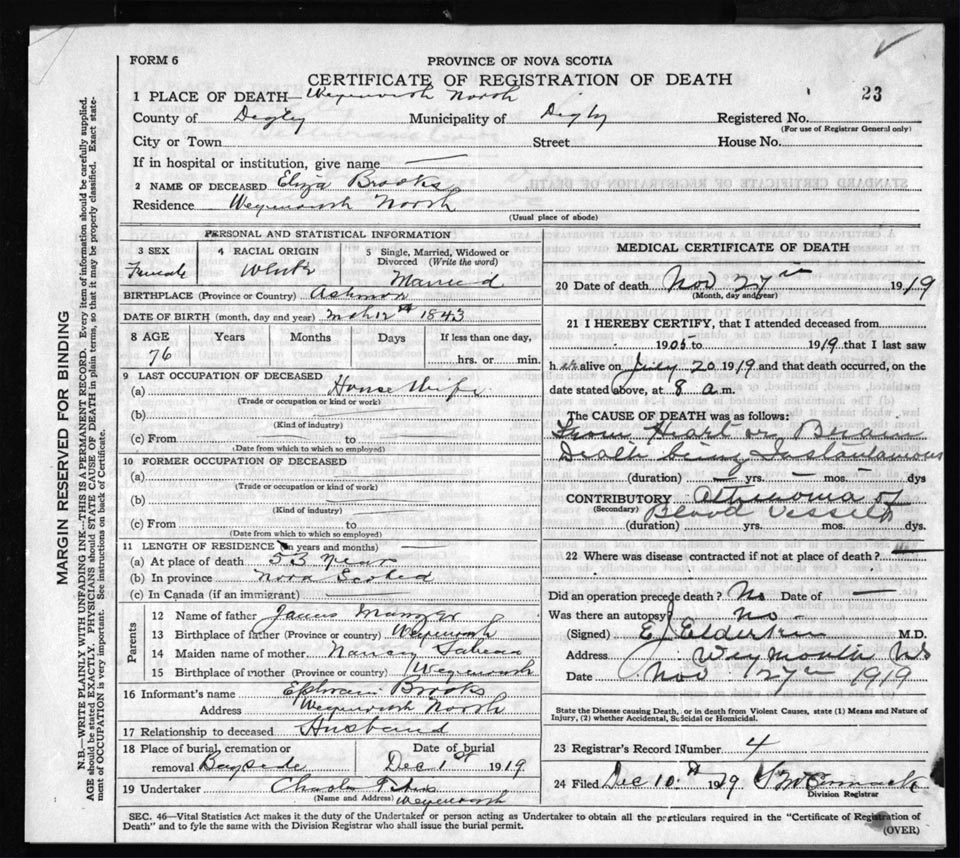 FORM 6
PROVINCE OF NOVA SCOTIA
CERTIFICATE OF REGISTRATION OF DEATH
23
1 PLACE OF DEATH— Weymouth North
County of Digby Municipality of Digby Registered No.
(For use of Registrar General only)
City or Town Street House No.
If in hospital or institution, give name —
2 NAME OF DECEASED Eliza Brooks
Residence Weymouth North
(Usual place of abode)
MARGIN RESERVED FOR BINDING
N.B.—WRITE PLAINLY WITH UNFADING INK.—THIS IS A PERMANENT RECORD. Every item of information should be carefully supplied.
AGE should be stated EXACTLY. PHYSICIANS should STATE CAUSE OF DEATH in plain terms, so that it may be properly classified. Exact state-
ment of OCCUPATION is very important. See instructions on back of Certificate.
PERSONAL AND STATISTICAL INFORMATION
3 SEX 4 RACIAL ORIGIN 5 Single, Married, Widowed or
Divorced (Write the word)
Female White Married
BIRTHPLACE (Province or Country) Ashmore
DATE OF BIRTH (month, day and year) Mch 12th 1843
8 AGE Years Months Days If less than one day,
76 hrs. or min.
9 LAST OCCUPATION OF DECEASED
(a) House Wife
(Trade or occupation or kind of work)
(b)
(Kind of industry)
(c) From — to —
(Date from which to which so employed)
10 FORMER OCCUPATION OF DECEASED
(a) —
(Trade or occupation or kind of work)
(b) —
(Kind of industry)
(c) From to
(Date from which to which so employed)
11 LENGTH OF RESIDENCE (in years and months)
(a) At place of death 53 Year
(b) In province Nova Scotia
(c) In Canada (if an immigrant)
Parents
12 Name of father James
13 Birthplace of father (Province or country) Weymouth
14 Maiden name of mother Nancy Sabean
15 Birthplace of mother (Province or country) Weymouth
16 Informant's name Ephraim Brooks
Address Weymouth North
17 Relationship to deceased Husband
18 Place of burial, cremation or Date of burial
removal Bayside Dec 1st 1919
19 Undertaker Charles
(Name and Address) Weymouth
MEDICAL CERTIFICATE OF DEATH
20 Date of death Nov 27th 1919
(Month, day and year)
21 I HEREBY CERTIFY, that I attended deceased from
1905 to 1919 that I last saw
h er alive on July 20 1919 and that death occurred, on the
date stated above, at 8 a.m.
The CAUSE OF DEATH was as follows:
From Heart or Brain
Death being Instantaneous
(duration) — yrs. — mos. — dys
CONTRIBUTORY Atheroma of
(Secondary) Blood Vessels
(duration) yrs. mos. dys.
22 Where was disease contracted if not at place of death? —
Did an operation precede death? No Date of —
Was there an autopsy No
(Signed) E J Elderkin M.D.
Address Weymouth NS
Date Nov 27th 1919
State the Disease causing Death, or in death from Violent Causes, state (1) Means and Nature of
Injury, (2) whether Accidental, Suicidal or Homicidal.
23 Registrar's Record Number 4
24 Filed Dec 10th 1929
Division Registrar
SEC. 46—Vital Statistics Act makes it the duty of the Undertaker or person acting as Undertaker to obtain all the particulars required in the "Certificate of Registration of
Death" and to fyle the same with the Division Registrar who shall issue the burial permit.
(OVER)